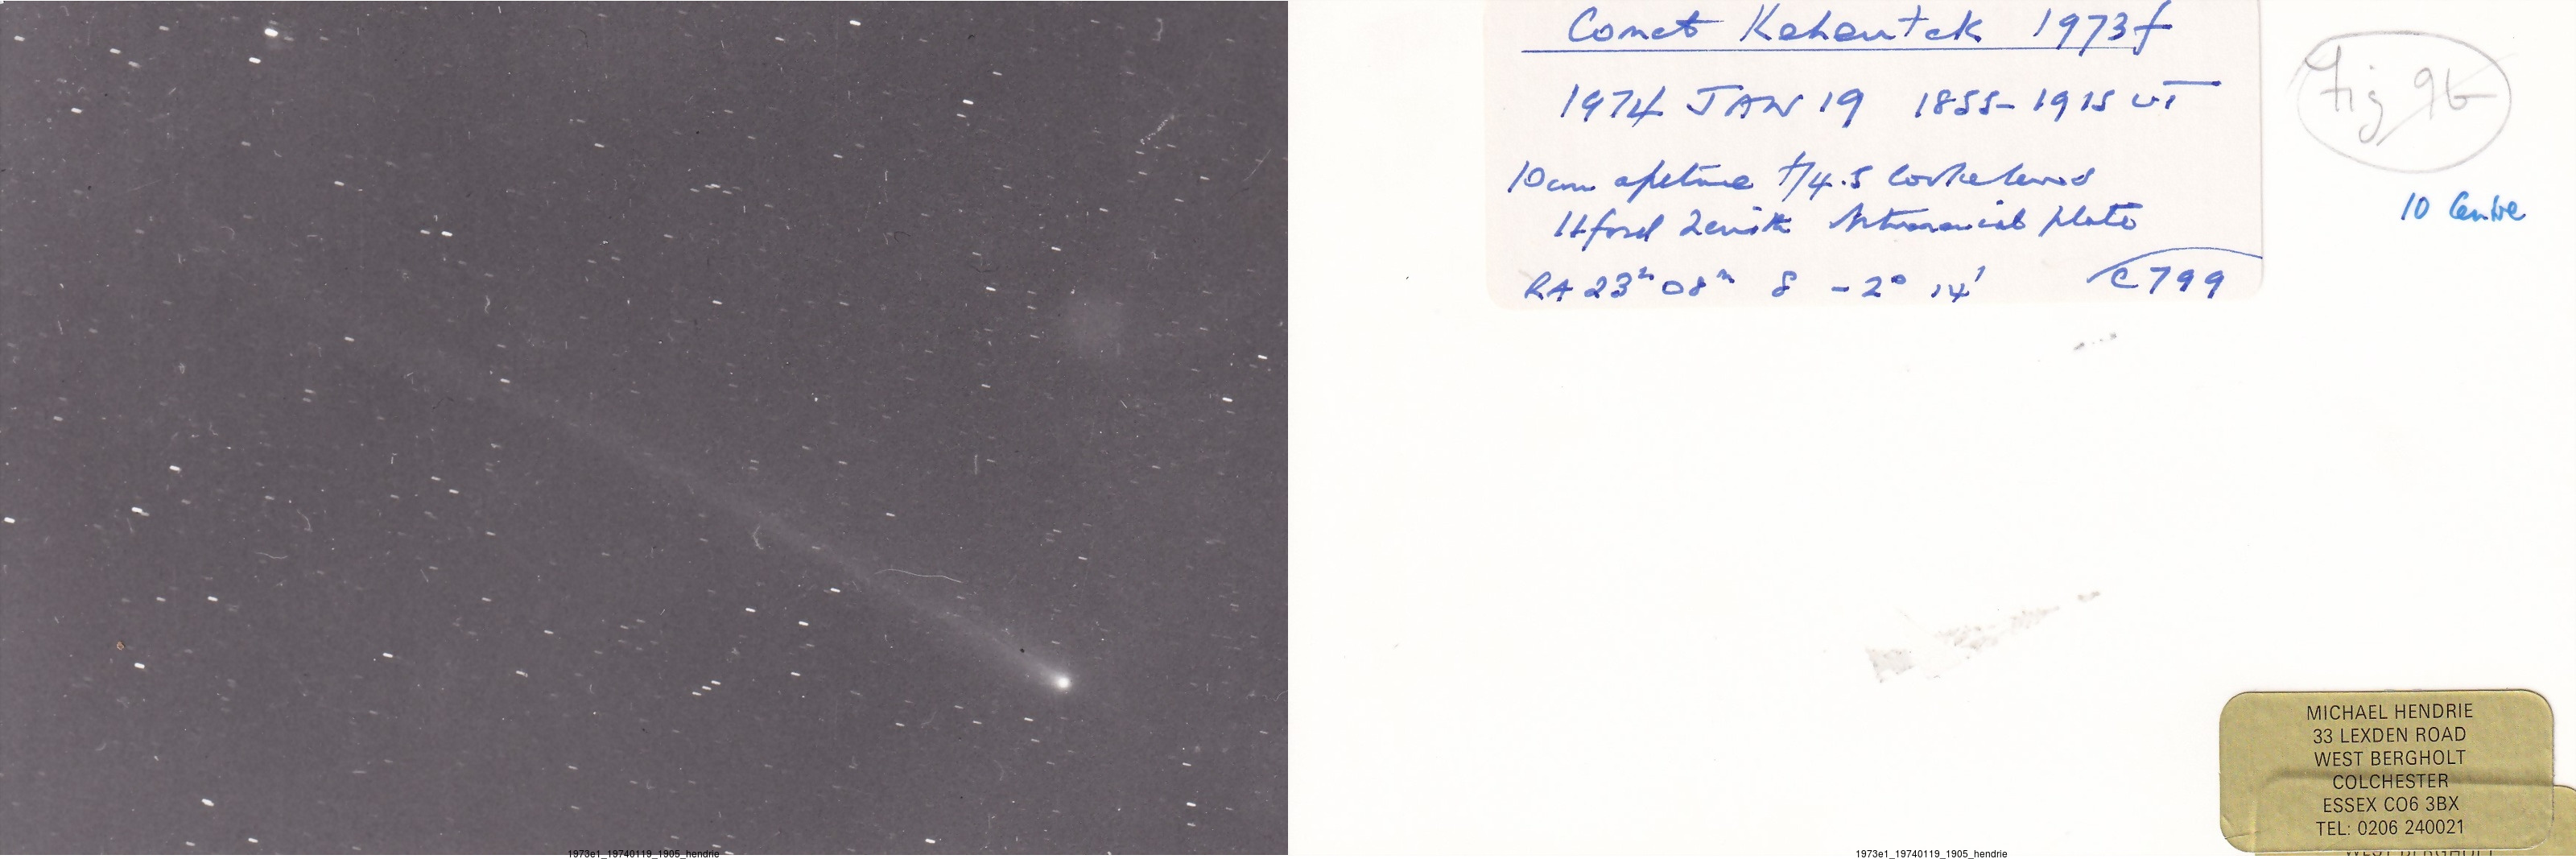 Comet Kohoutek 1973f
1974 JAN 19 1855-1915 UT
10cm aperture f/4.5 Cooke lens
Ilford Zenith Astronomical plate
RA 23h 08m δ -2° 14' C799
Fig 9b
10 Centre
MICHAEL HENDRIE
33 LEXDEN ROAD
WEST BERGHOLT
COLCHESTER
ESSEX CO6 3BX
TEL: 0206 240021
WEST BERGHOLT
1973e1_19740119_1905_hendrie
1973e1_19740119_1905_hendrie